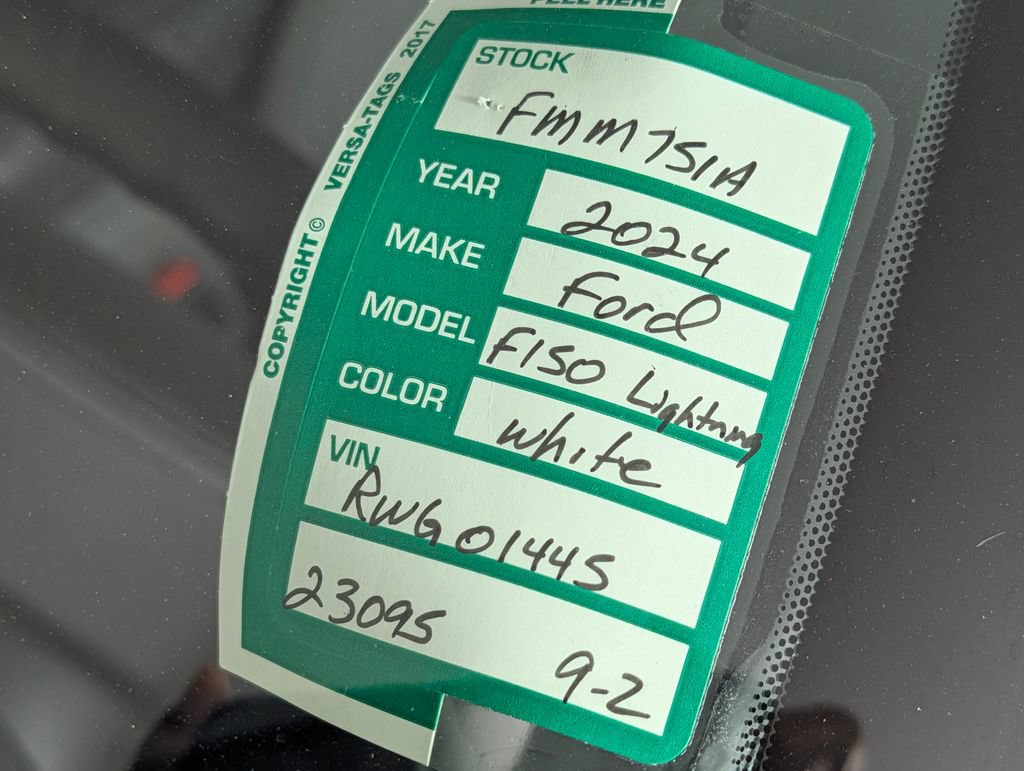 PEEL HERE
COPYRIGHT © VERSA-TAGS 2017
STOCK
FMM751A
YEAR 2024
MAKE Ford
MODEL F150 Lightning
COLOR white
VIN
RWG01445
23095 9-2